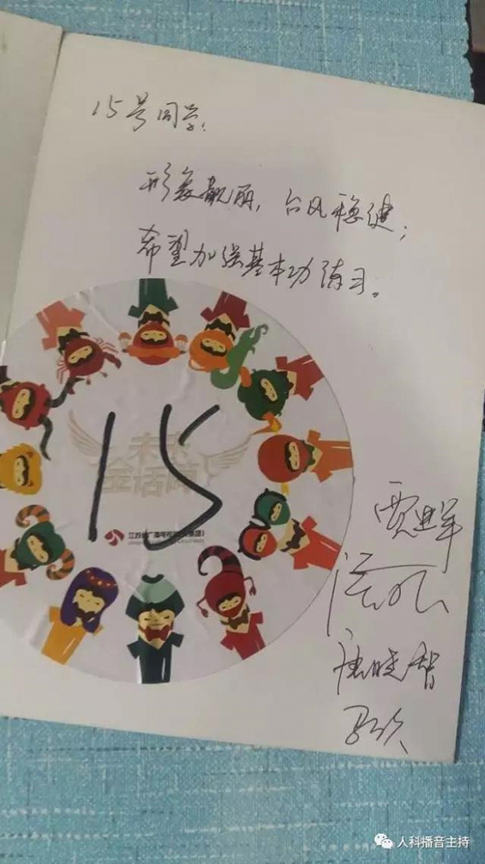 15号同学:
形象靓丽，台风稳健；
希望加强基本功练习。
未来
金话筒
15
江苏省广播电视总台(集团)
人科播音主持